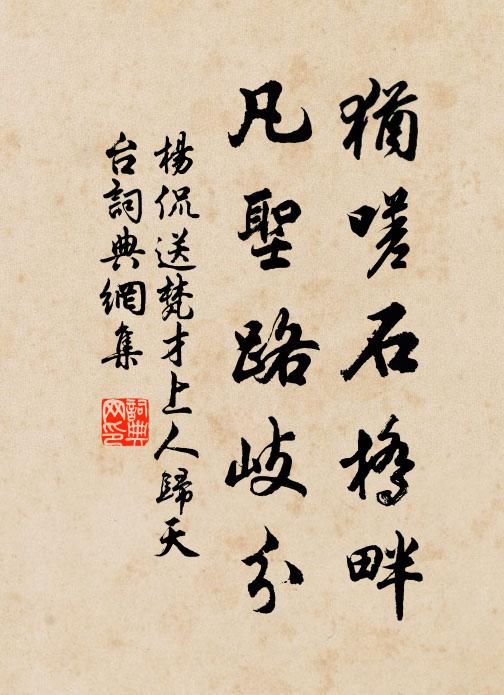 猶嗟石橋畔
凡聖路歧分
楊侃送梵才上人歸天
台詞典網集
詞典
网印